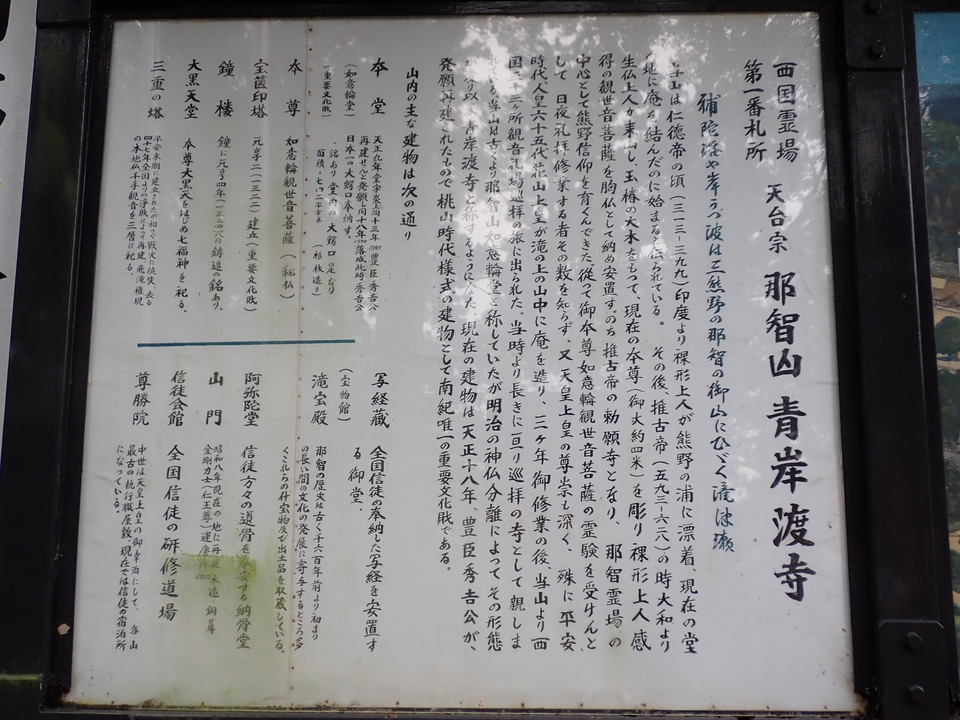 西国霊場
第一番札所
天台宗 那智山 青岸渡寺
補陀洛や岸うつ波は三熊野の那智の御山にひびく滝津瀬
当山は仁徳帝の頃(三一三-三九九)印度より裸形上人が熊野の浦に漂着、現在の堂
の地に庵を結んだのに始まると伝られている。その後、推古帝(五九三-六二八)の時大和より
生仏上人が来山し、玉椿の大木をもって、現在の本尊(御丈約四米)を彫り裸形上人感
得の観世音菩薩を胸仏として納め安置す。のち推古帝の勅願寺となり、那智霊場の
中心として熊野信仰を育くんできた。従って御本尊如意輪観世音菩薩の霊験を受けんと
して日夜礼拝修業する者その数を知らず、又天皇上皇の尊崇も深く、殊に平安
時代人皇六十五代花山上皇が滝の上の山中に庵を造り、三ヶ年御修業の後、当山より西
国三十三ヶ所観音霊場巡拝の旅に出られた。当時より長きに亘り巡拝の寺として親しま
れている当山は古くより那智山如意輪堂と称していたが明治の神仏分離によってその形態
がかわり以後青岸渡寺と称するようになった現在の建物は天正十八年、豊臣秀吉公が、
発願再建されたもので桃山時代様式の建物として南紀唯一の重要文化財である。
山内の主な建物は次の通り
本堂
(如意輪堂)
(重要文化財)
天正九年堂宇炎上同十三年 豊臣秀吉公
再建せんと発願し同十八年 落成此時、秀吉公
日本一の大鰐口奉納す。
銘あり堂内の大鰐口是なり
面積-七〇二平方米(杉板造り)
本尊 如意輪観世音菩薩(秘仏)
宝篋印塔 元亨二(一三二二)建立(重要文化財)
鐘楼 鐘に元亨四年(一三二四)の鋳造の銘あり。
大黒天堂 本尊大黒天をはじめ七福神を祀る。
三重の塔
平安末期に建立されたが相つぐ戦火に焼失、去る
四十七年全国よりの浄財によって再建、飛滝権現
の本地仏千手観音を三層に祀る。
写経蔵 全国信徒の奉納した写経を安置す
る御堂.
(宝物館)
滝宝殿
那智の歴史は古く千六百年前より初まり
の長い間の文化の発展に寄与するところ多
くこれらの什宝物及び出土品を収蔵している。
阿弥陀堂 信徒方々の遺骨を奉安する納骨堂
山門
昭和八年現在の地に再建 木造 銅葺
金剛力士(仁王尊)運慶作
信徒会館 全国信徒の研修道場
尊勝院
中世は天皇上皇の御幸泊にして、当山
最古の執行職屋敷、現在では信徒の宿泊所
になっている。